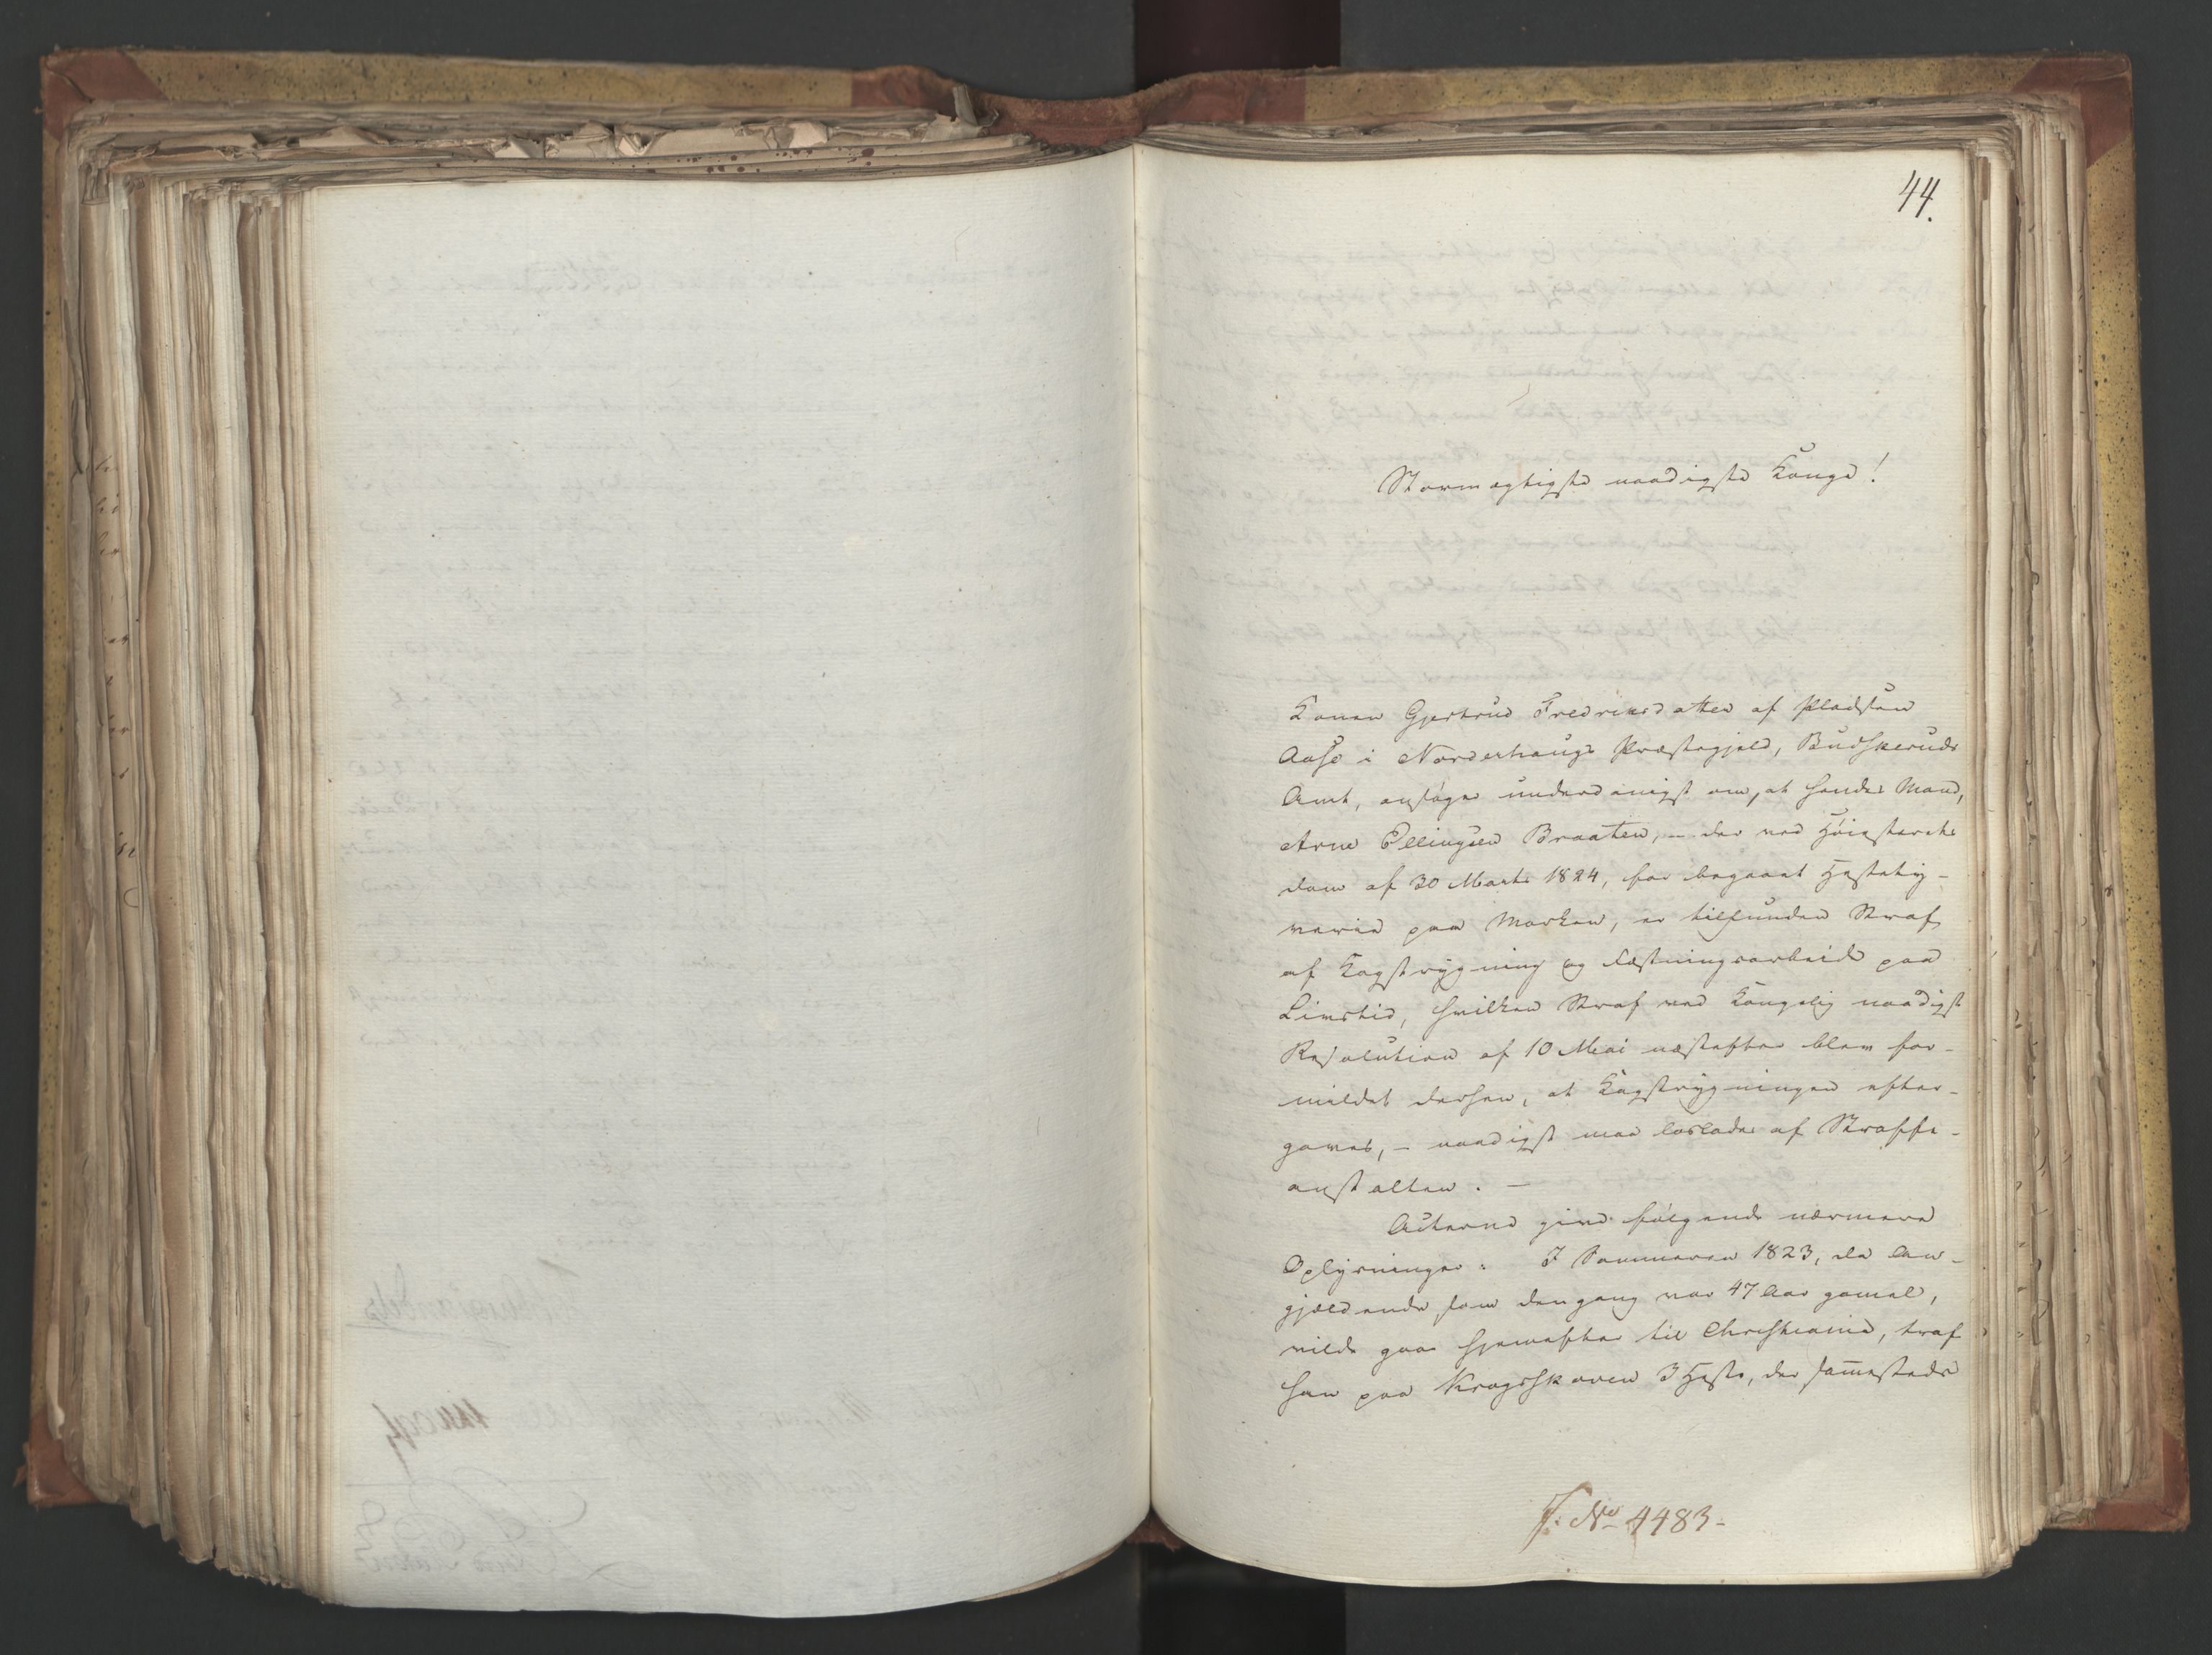 44.
Stormægtigste naadigste Konge!
Konen Gjertrud Fredriksdatter af Pladsen
Aase i Norderhougs Præstegjeld, Budskeruds
Amt, ansøger underdanigst om, at hendes Mand,
Arne Ellingsen Braaten, – der ved Høiesterets
dom af 30 Marts 1824, for begaaet Hestety-
verie paa Marken, er tilfunden Straf
af Kagstrygning og Fæstningsarbeide paa
Livstid, hvilken Straf ved Kongelig naadigst
Resolution af 10 Mai næstefter blev for-
mildet derhen, at Kagstrygningen efter-
gaves, – naadigst maa løslades af Straffe-
anstalten. –
Acterne give følgende nærmere
Oplysninger: I Sommeren 1823, da An-
gjældende, som dengang var 47 Aar gamel,
vilde gaae hjemefter til Christiania, traf
han paa Krogsskoven 3 Heste, der sammesteds
J. No 4483-